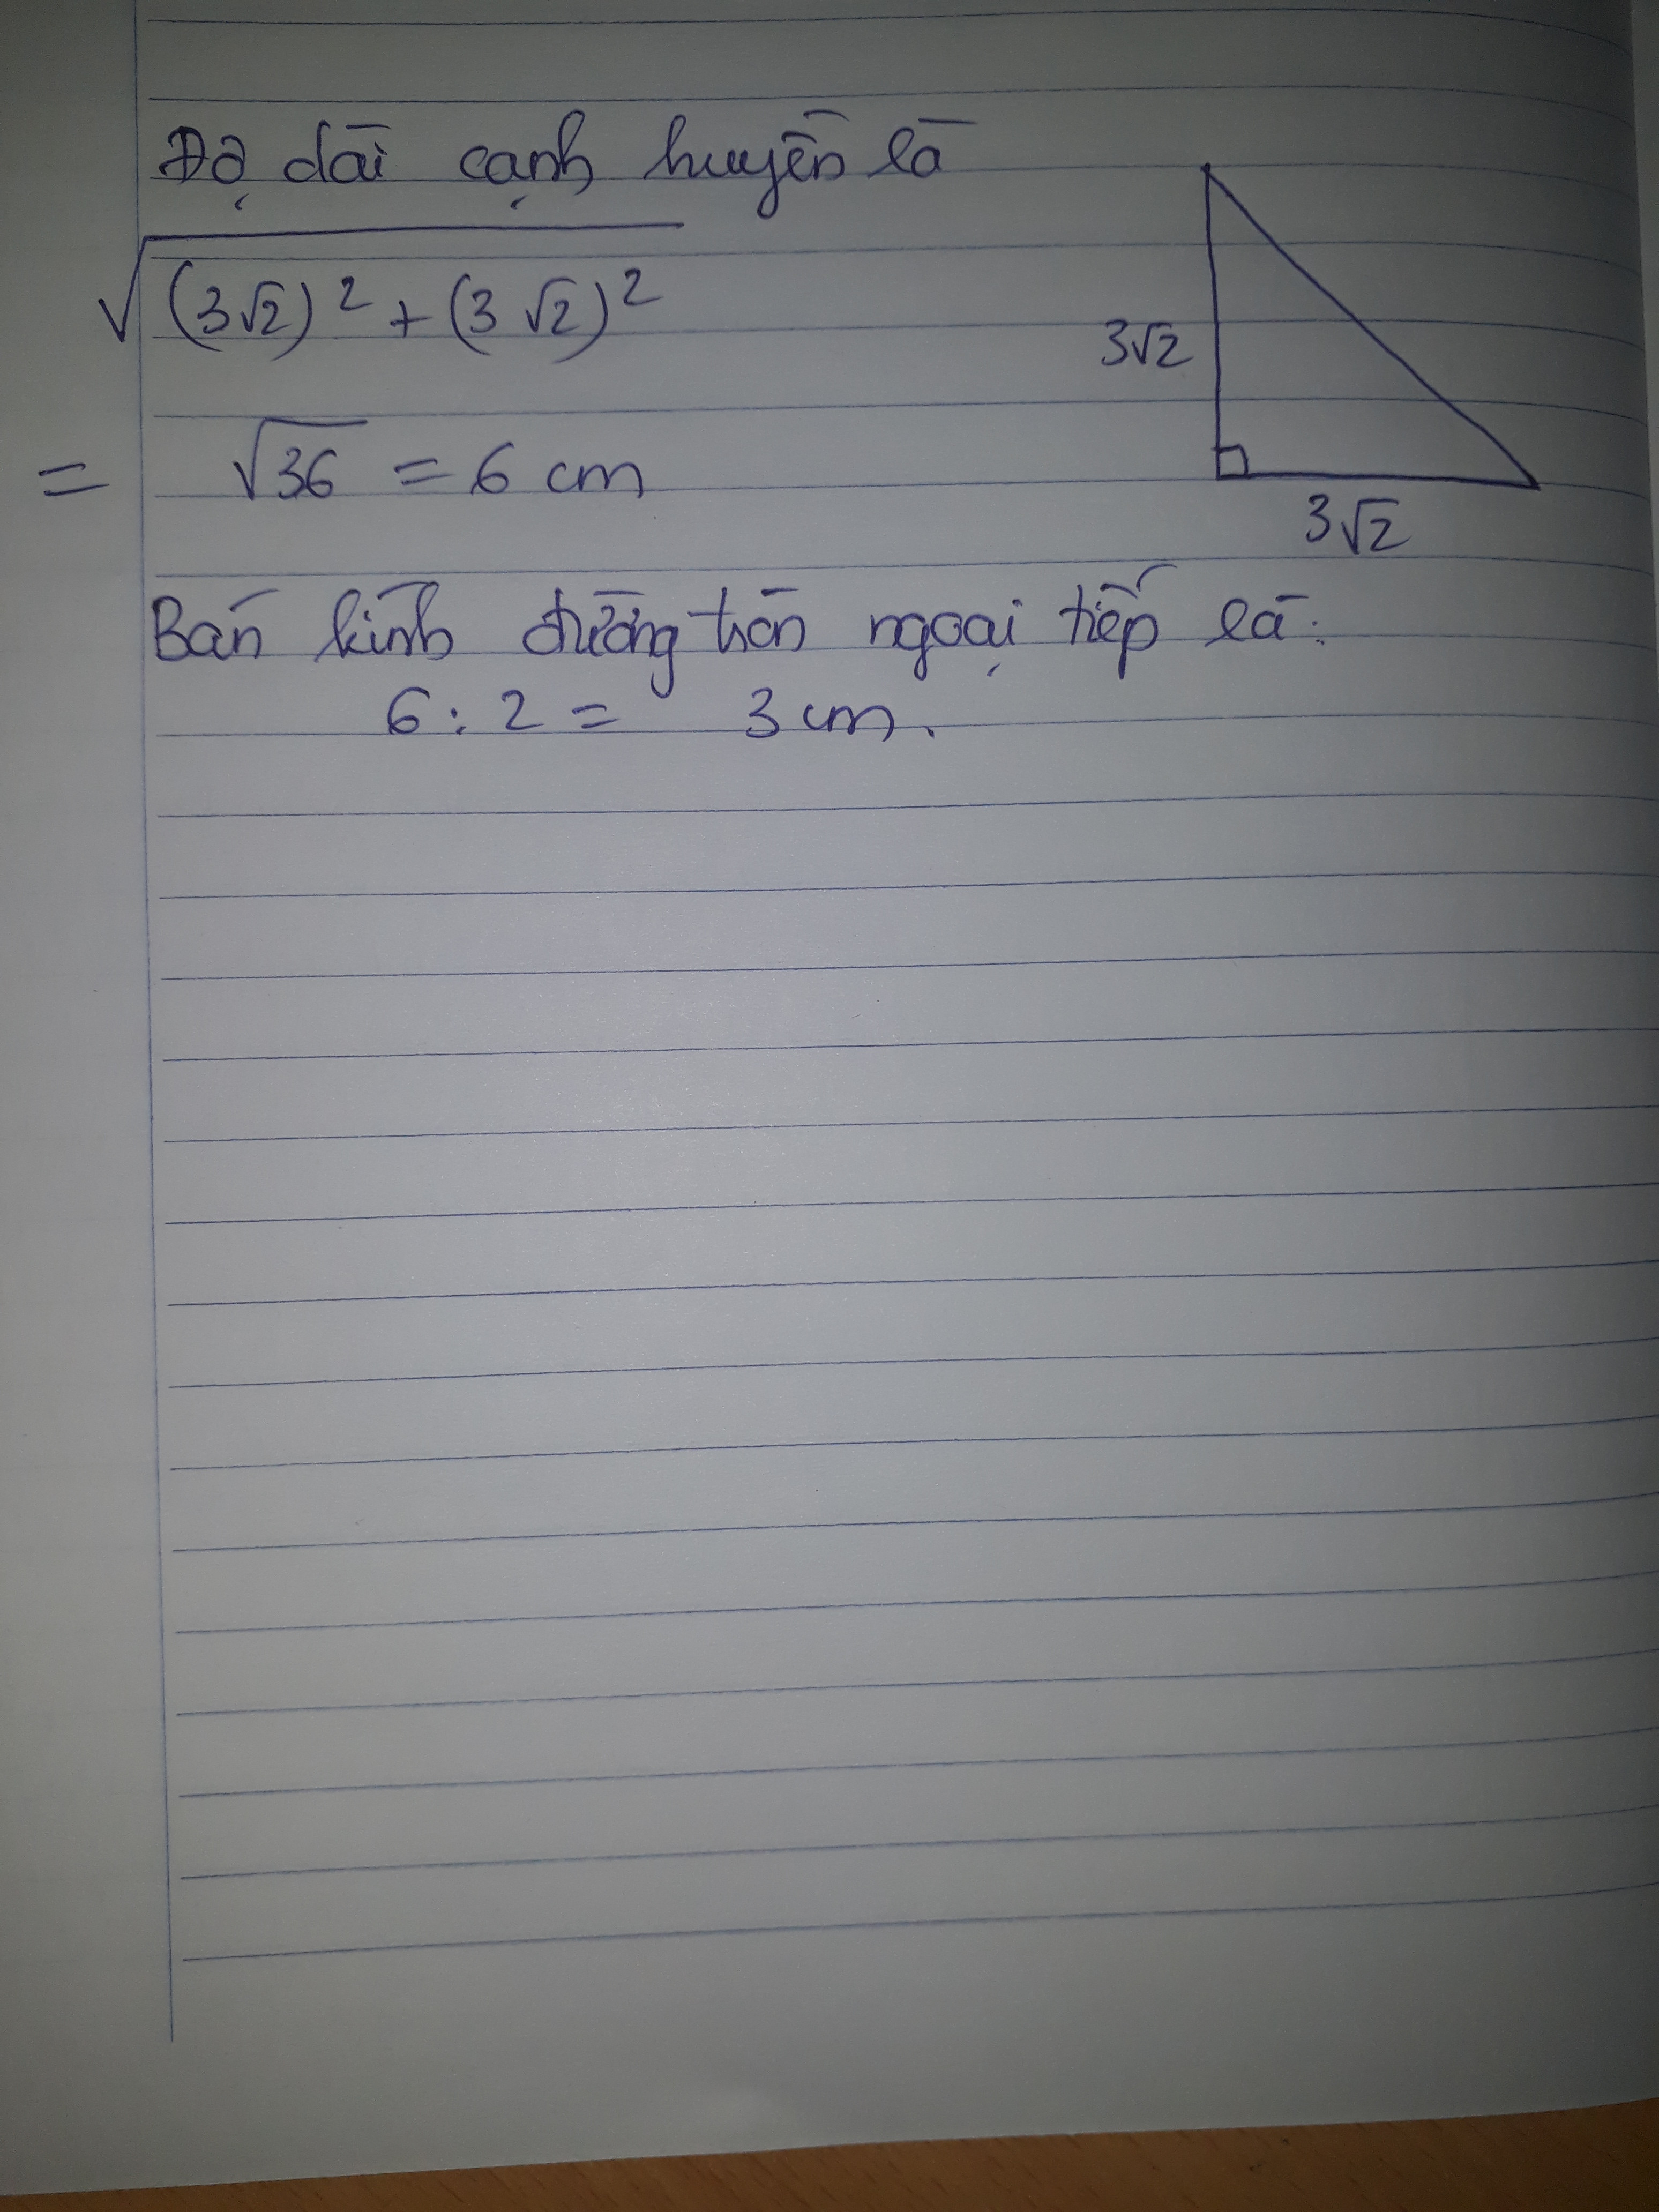 Độ dài cạnh huyền là
√(3√2)² + (3√2)²
= √36 = 6 cm
3√2
3√2
Bán kính đường tròn ngoại tiếp là:
6 : 2 = 3 cm.